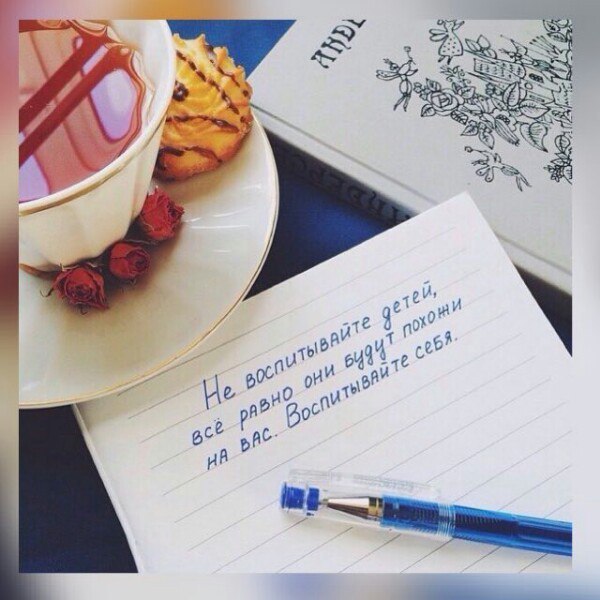 АНДЕ
Не воспитывайте детей,
всё равно они будут похожи
на вас. Воспитывайте себя.